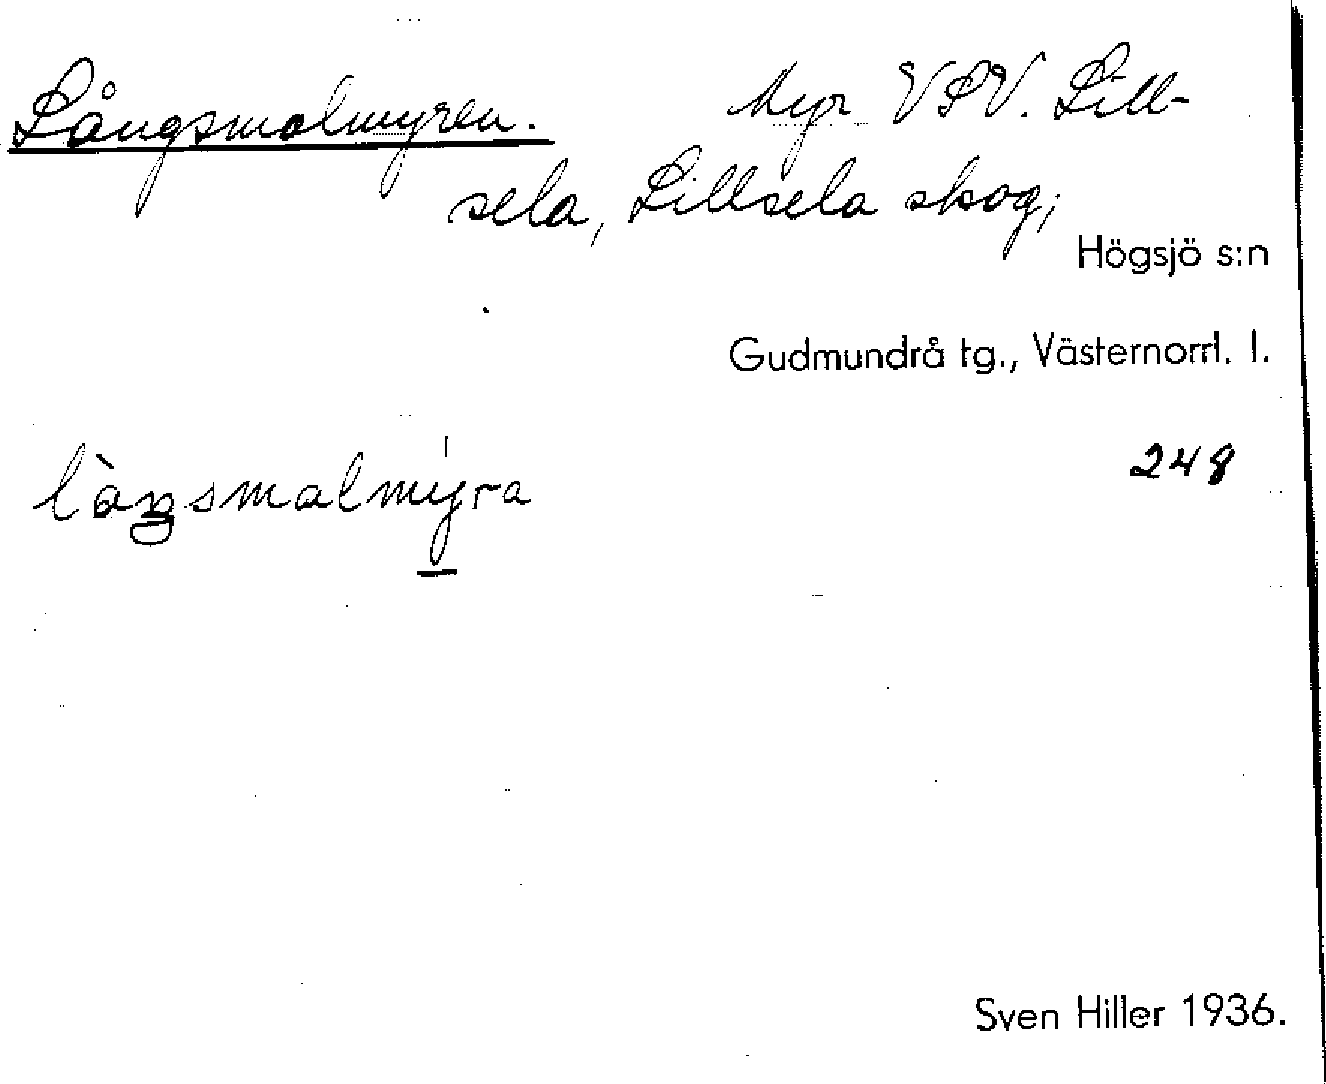 Långsmalmyren. Myr VSV. Lill-
sela, Lillsela skog;
Högsjö s:n
Gudmundrå tg., Västernorrl. l.
248
làŋsmalmýra
Sven Hiller 1936.